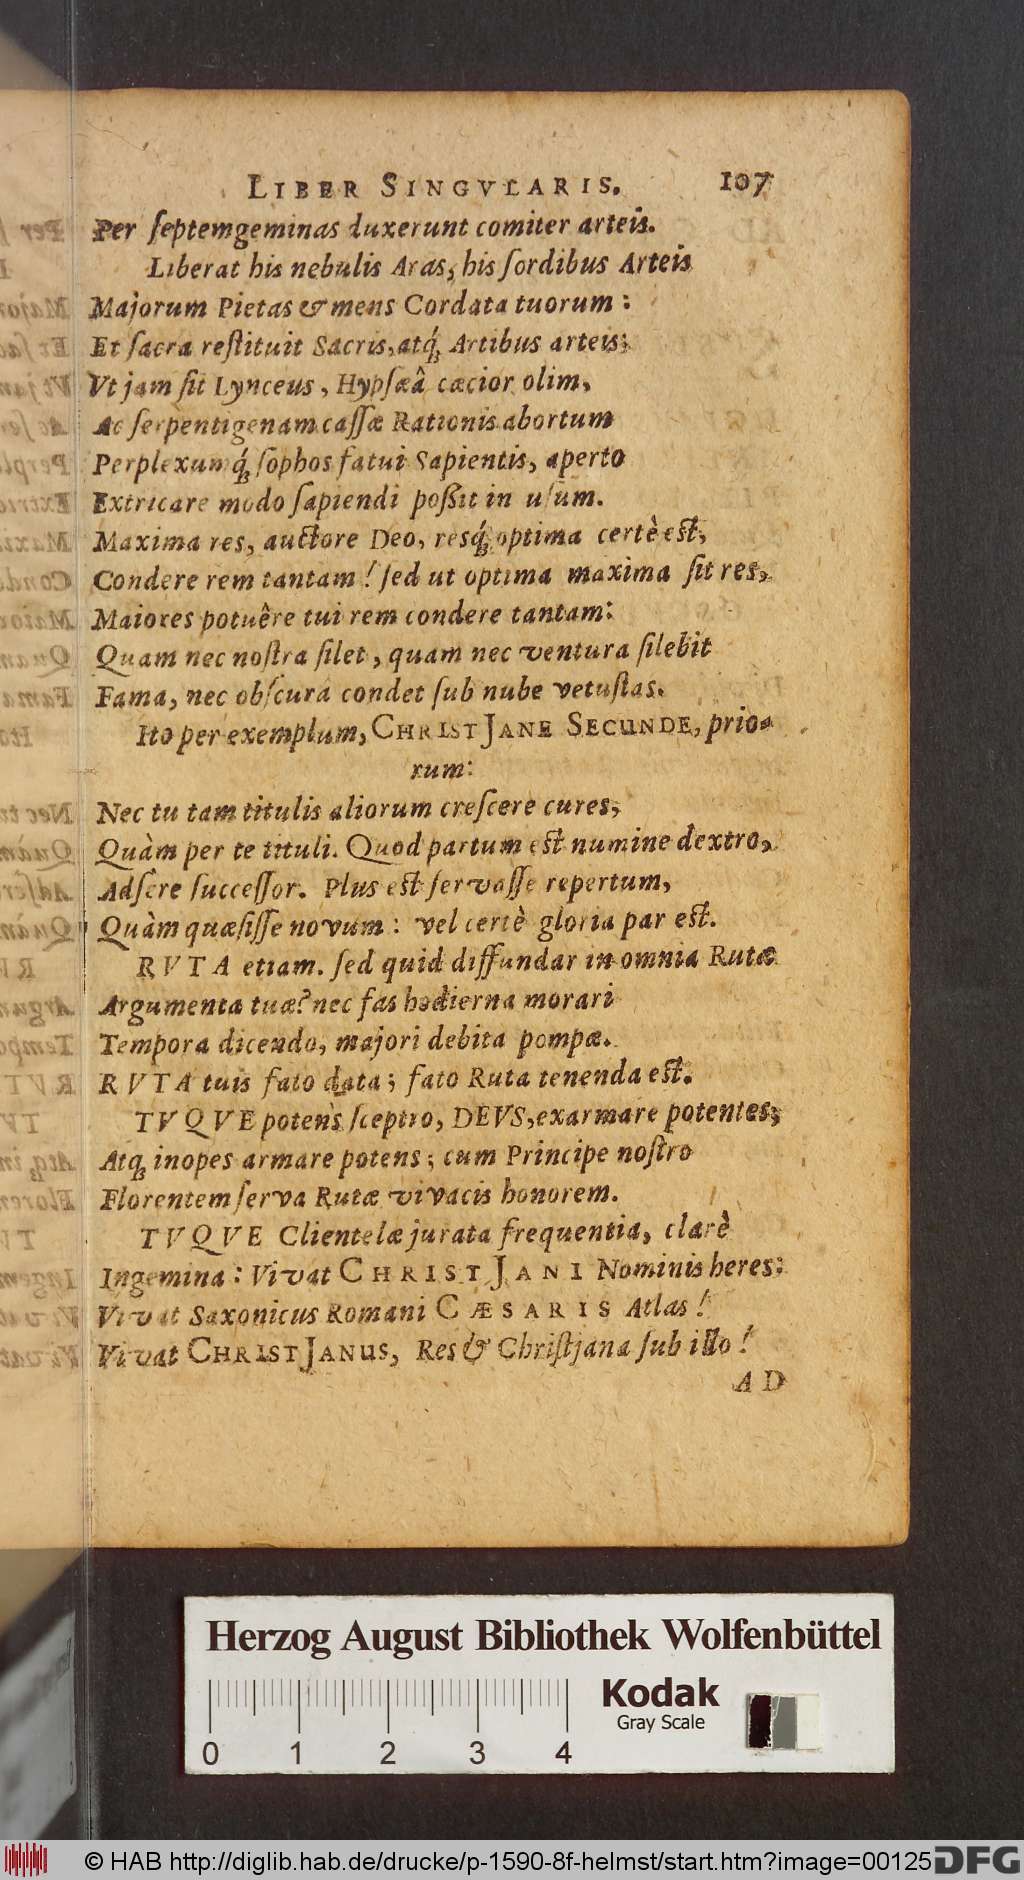 LIBER SINGVLARIS. 107
Per ſeptemgeminas duxerunt comiter arteis.
Liberat his nebulis Aras, his ſordibus Arteis
Majorum Pietas & mens Cordata tuorum:
Et ſacra reſtituit Sacris, atq́; Artibus arteis;
Vt jam ſit Lynceus, Hypſæâ cæcior olim,
Ac ſerpentigenam caſſæ Rationis abortum
Perplexumq́; ſophos fatui Sapientis, aperto
Extricare modo ſapiendi poßit in uſum.
Maxima res, auctore Deo, resq́; optima certè eſt,
Condere rem tantam! ſed ut optima maxima ſit res,
Maiores potuêre tui rem condere tantam:
Quam nec noſtra ſilet, quam nec ventura ſilebit
Fama, nec obſcura condet ſub nube vetuſtas.
Ito per exemplum, CHRISTJANE SECUNDE, prio-
rum:
Nec tu tam titulis aliorum creſcere cures,
Quàm per te tituli. Quod partum eſt numine dextro,
Adſere ſucceſſor. Plus eſt ſervaſſe repertum,
Quàm quæſiſſe novum: vel certè gloria par eſt.
RVTA etiam. ſed quid diffundar in omnia Rutæ
Argumenta tuæ? nec fas hodierna morari
Tempora dicendo, majori debita pompæ.
RVTA tuis fato data; fato Ruta tenenda eſt.
TVQVE potens ſceptro, DEVS, exarmare potentes;
Atq; inopes armare potens; cum Principe noſtro
Florentem ſerva Rutæ vivacis honorem.
TVQVE Clientelæ jurata frequentia, clarè
Ingemina: Vivat CHRISTJANI Nominis heres:
Vivat Saxonicus Romani CÆSARIS Atlas!
Vivat CHRISTJANUS, Res & Chriſtjana ſub illo!
AD
Herzog August Bibliothek Wolfenbüttel
Kodak
Gray Scale
0 1 2 3 4
© HAB http://diglib.hab.de/drucke/p-1590-8f-helmst/start.htm?image=00125 DFG